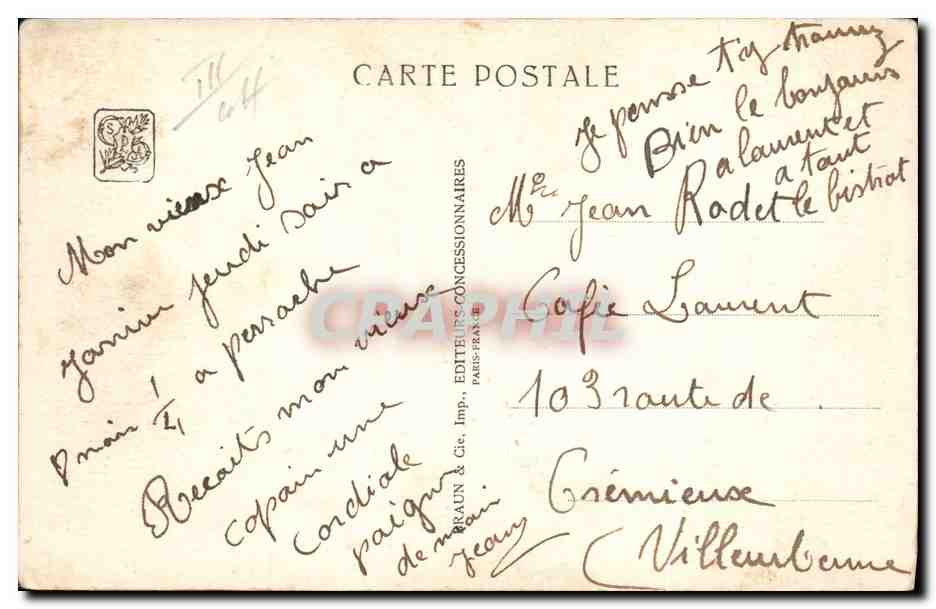 CARTE POSTALE
III
Mon vieux Jean
jeudi soir a
8 mais 1/4 a perrache
Recoits mon vieux
copain une
cordiale
paigne
de main
Jean
BRAUN & Cie, Imp., EDITEURS-CONCESSIONNAIRES
PARIS-FRANCE
CPAPHIL
Je pensse t'y trouvez
Bien le bonjours
a laurent et
a tout
le bistrot
Mr Jean Rodet
Cafée Laurent
103 route de
Crémieux
(Villeurbanne